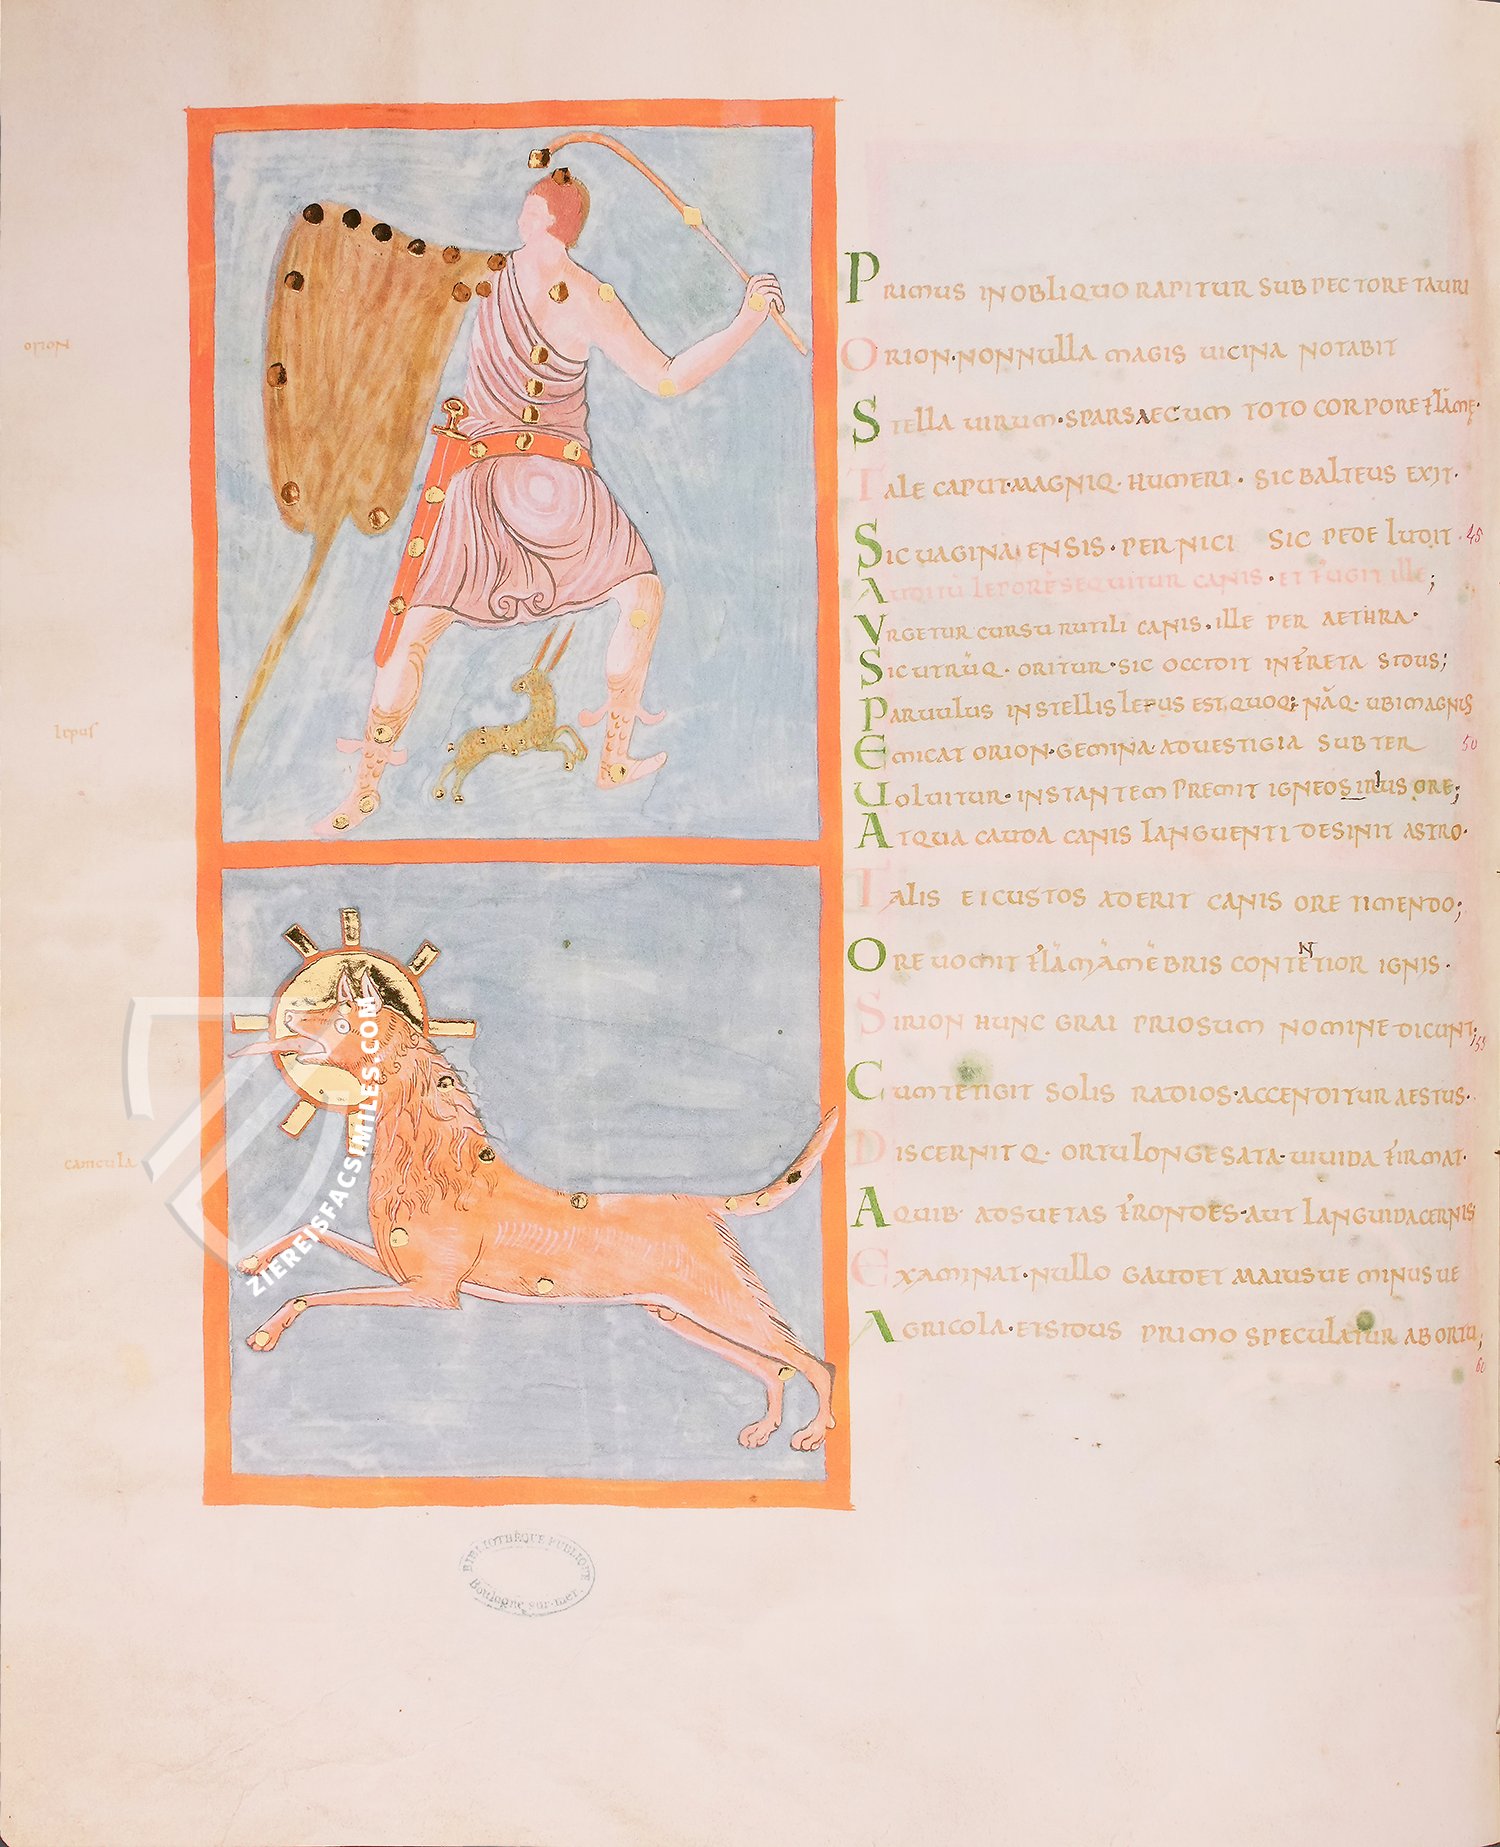 orion
lepus
canicula
PRIMUS IN OBLIQUO RAPITUR SUB PECTORE TAURI
ORION·NON NULLA MAGIS UICINA NOTABIT
STELLA UIRUM·SPARSAE CUM TOTO CORPORE FLAMĘ·
TALE CAPUT·MAGNIQ· HUMERI· SIC BALTEUS EXIT·
SIC UAGINA ENSIS·PERNICI SIC PEDE LUDIT· 45
LEPORĒ SEQUITUR CANIS·ET FUGIT ILLE;
VRGETUR CURSU RUTILI CANIS·ILLE PER AETHRA·
SIC UTRŪQ· ORITUR·SIC OCCIDIT IN FRETA SIDUS;
PARUULUS IN STELLIS LEPUS EST, QUOQ; NĀQ· UBI MAGNUS
EMICAT ORION·GEMINA·AD UESTIGIA SUBTER 50
UOLUITUR·INSTANTEM PREMIT IGNEOS ORE;
ATQUA CAUDA CANIS LANGUENTI DESINIT ASTRO·
TALIS EI CUSTOS ADERIT CANIS ORE TIMENDO;
ORE UOMIT FLĀMĀ MĒBRIS CONTENTIOR IGNIS·
SIRION HUNC GRAI PRIOSUM NOMINE DICUNT; 55
CUM TETIGIT SOLIS RADIOS·ACCENDITUR AESTUS·
DISCERNITQ· ORTU LONGE SATA·UIUIDA FIRMAT·
AQUIB· ADSUETAS FRONDES·AUT LANGUIDA CERNIS
EXAMINAT·NULLO GAUDET MAIUSUE MINUSUE
AGRICOLA·ET SIDUS PRIMO SPECULATUR AB ORTU; 60
ZIEREISFACSIMILES.COM
BIBLIOTHÈQUE PUBLIQUE
Boulogne sur-mer.